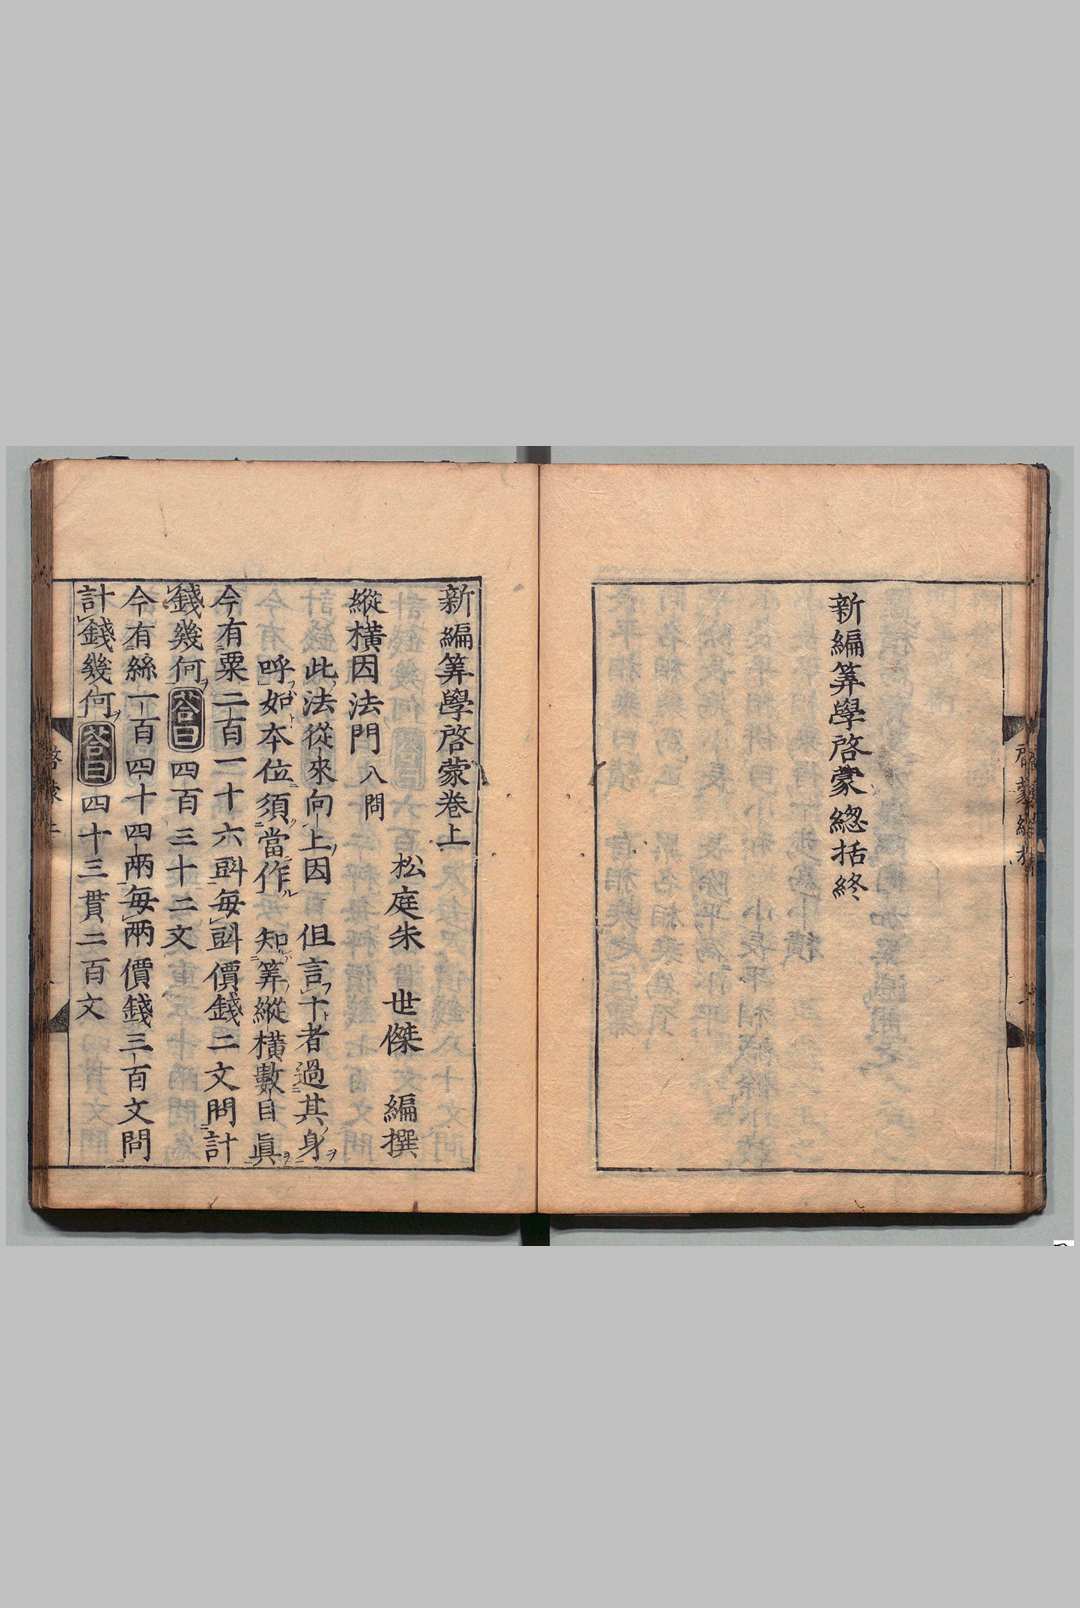 新編筭學啓蒙緫括終
新編筭學啓蒙卷上
松庭朱 世傑 編撰
縱橫因法門 八問
此法從來向上因 但言十者過其身
呼如本位須當作 知筭縱橫數目眞
今有粟二百一十六㪷每㪷價錢二文問計
錢幾何 荅曰 四百三十二文
今有絲一百四十四兩每兩價錢三百文問
計錢幾何 荅曰 四十三貫二百文